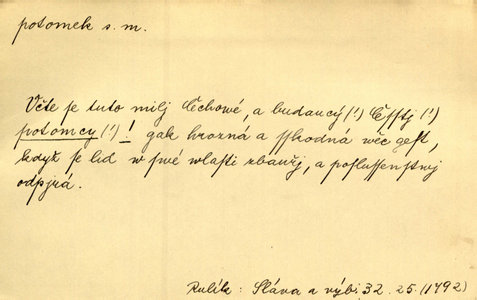 potomek s. m.
Včte se tuto milj Čechowé, a budaucý(!) Čsstj(!)
potomcy(!)! gak hrozná a sskodná wěc gest,
když se lid w swé wlasti zbauřj, a poslussenstwj
odpjrá.
Rulík: Sláva a výb. 32. 25. (1792)